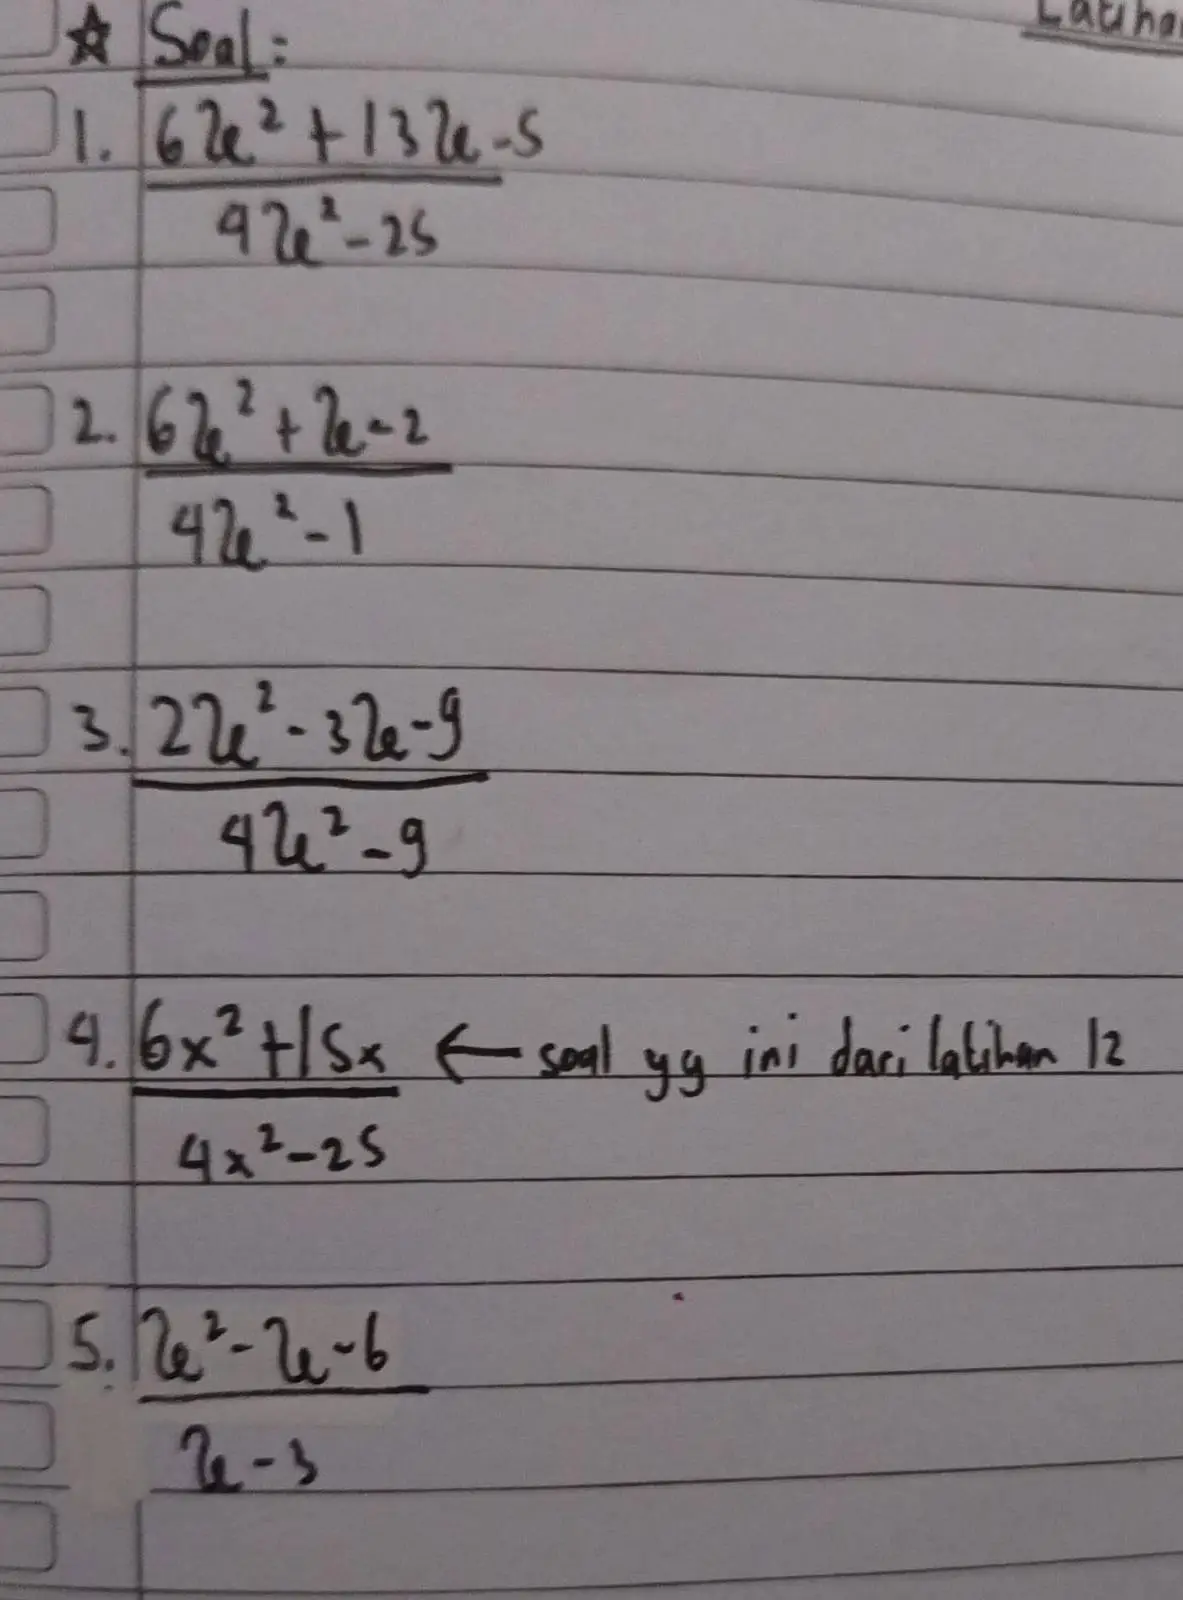 Latihan
☆ Soal:
1. 6x² + 13x - 5
4x² - 25
2. 6x² + x - 2
4x² - 1
3. 2x² - 3x - 9
4x² - 9
4. 6x² + 15x ← soal yg ini dari latihan 12
4x² - 25
5. x² - x - 6
x - 3